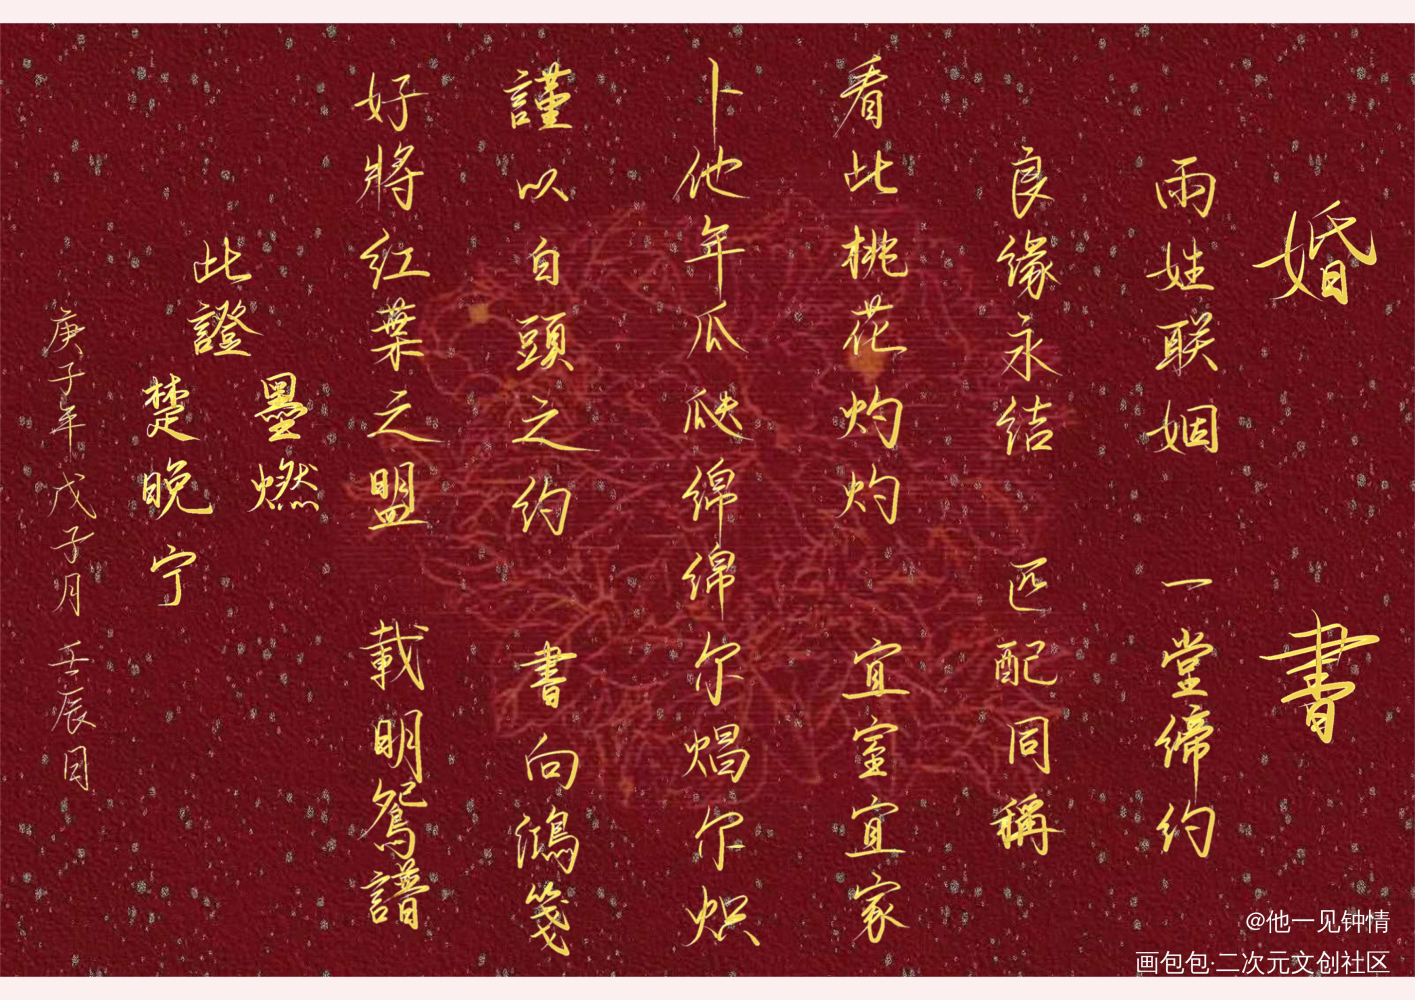 婚書
兩姓联姻 一堂缔约
良缘永结 匹配同稱
看此桃花灼灼 宜室宜家
卜他年瓜瓞绵绵尔焻尔炽
謹以白頭之约 書向鴻笺
好將红葉之盟 載明鸳譜
此證
墨燃
楚晚宁
庚子年戊子月 壬辰日
@他一见钟情
画包包·二次元文创社区